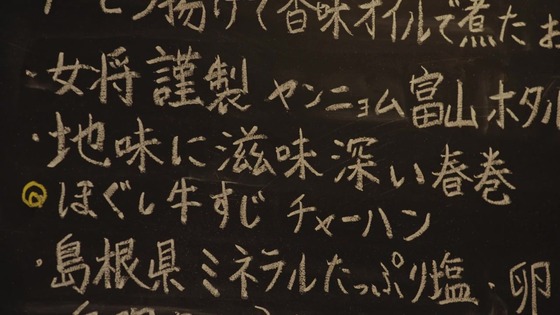 揚げて香味オイルで煮たお
・女将謹製 ヤンニョム富山ホタル
・地味に滋味深い春巻
ほぐし牛すじ チャーハン
・島根県ミネラルたっぷり塩・卵